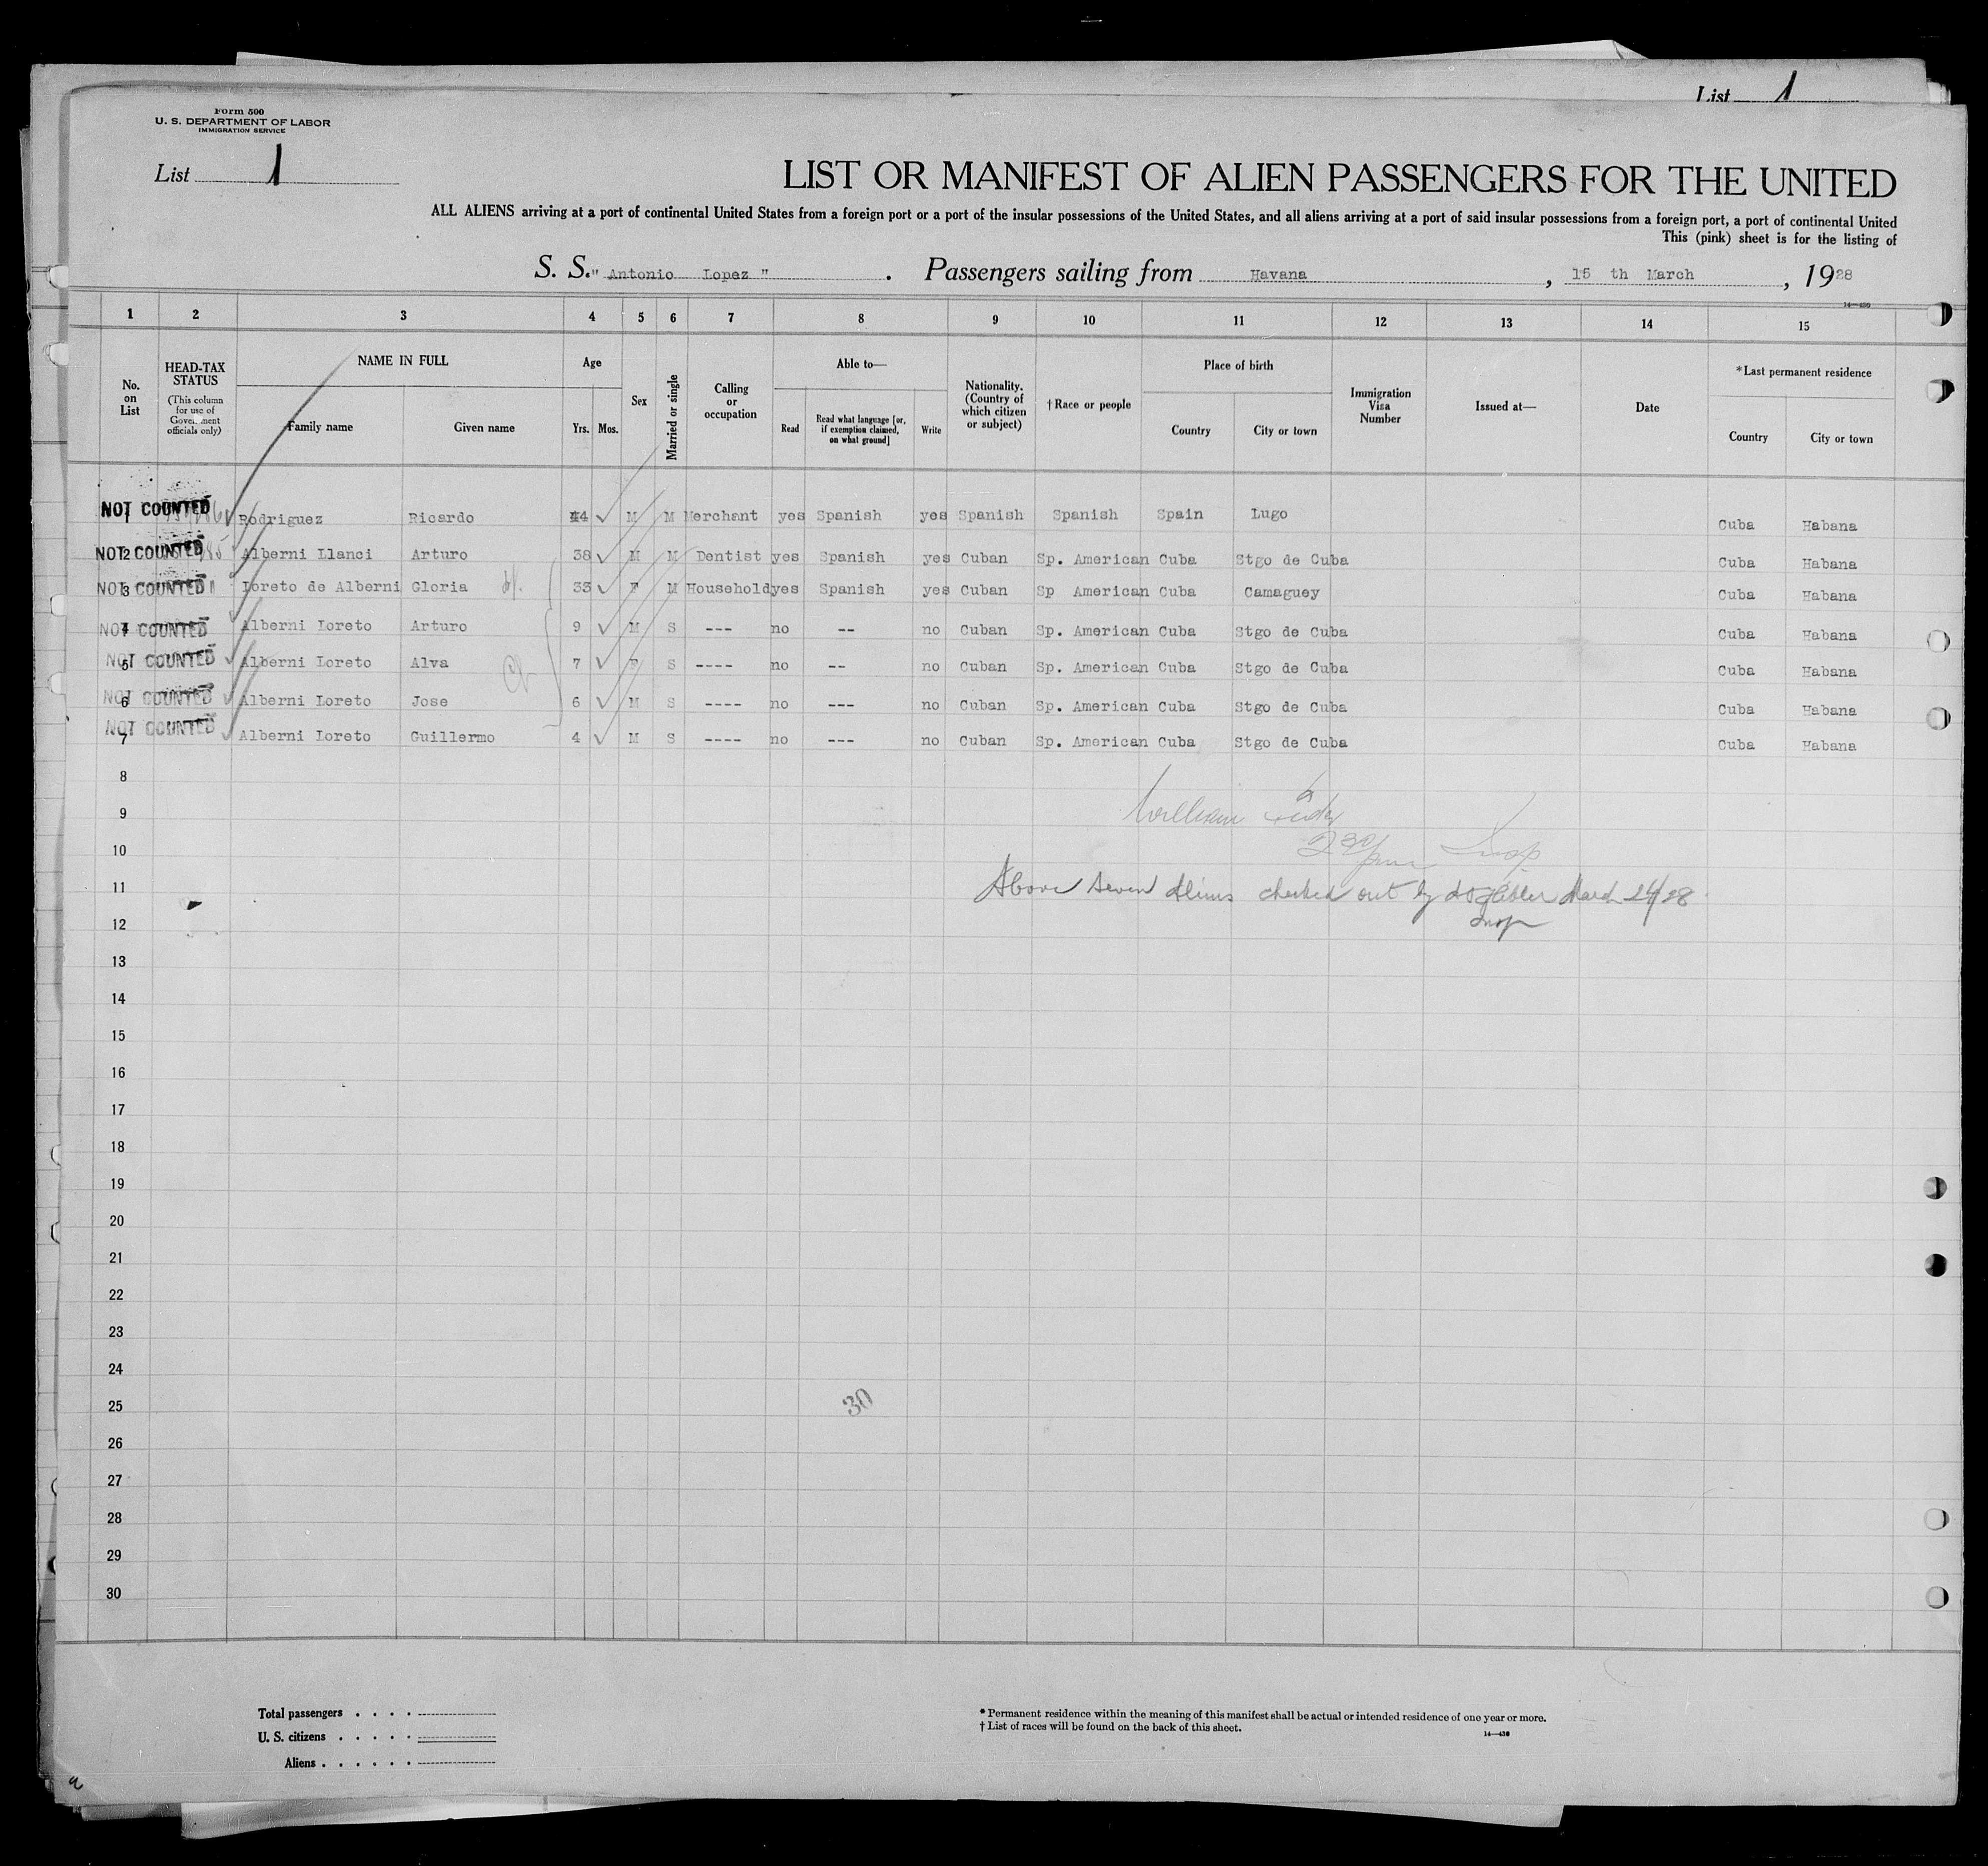 List 1
Form 500
U. S. DEPARTMENT OF LABOR
IMMIGRATION SERVICE
List 1
LIST OR MANIFEST OF ALIEN PASSENGERS FOR THE UNITED
ALL ALIENS arriving at a port of continental United States from a foreign port or a port of the insular possessions of the United States, and all aliens arriving at a port of said insular possessions from a foreign port, a port of continental United
This (pink) sheet is for the listing of
S. S. " Antonio Lopez " . Passengers sailing from Havana , 15 th March , 1928
14—430
1 2 3 4 5 6 7 8 9 10 11 12 13 14 15
No. on List
HEAD-TAX STATUS
(This column for use of Government officials only)
NAME IN FULL
Family name Given name
Age
Yrs. Mos.
Sex
Married or single
Calling or occupation
Able to—
Read
Read what language [or, if exemption claimed, on what ground]
Write
Nationality. (Country of which citizen or subject)
†Race or people
Place of birth
Country City or town
Immigration Visa Number
Issued at—
Date
*Last permanent residence
Country City or town
NOT COUNTED 1 Rodriguez Ricardo 44 M M Merchant yes Spanish yes Spanish Spanish Spain Lugo Cuba Habana
NOT COUNTED 2 Alberni Llanci Arturo 38 M M Dentist yes Spanish yes Cuban Sp. American Cuba Stgo de Cuba Cuba Habana
NOT COUNTED 3 Loreto de Alberni Gloria 33 F M Household yes Spanish yes Cuban Sp American Cuba Camaguey Cuba Habana
NOT COUNTED 4 Alberni Loreto Arturo 9 M S --- no -- no Cuban Sp. American Cuba Stgo de Cuba Cuba Habana
NOT COUNTED 5 Alberni Loreto Alva 7 F S ---- no -- no Cuban Sp. American Cuba Stgo de Cuba Cuba Habana
NOT COUNTED 6 Alberni Loreto Jose 6 M S ---- no --- no Cuban Sp. American Cuba Stgo de Cuba Cuba Habana
NOT COUNTED 7 Alberni Loreto Guillermo 4 M S ---- no --- no Cuban Sp. American Cuba Stgo de Cuba Cuba Habana
8
William
9
2 30 pm Insp
10
Above seven aliens checked out by March 24/28
11
Insp
12
13
14
15
16
17
18
19
20
21
22
23
24
25
30
26
27
28
29
30
Total passengers . . . .
U. S. citizens . . . . .
Aliens . . . . . .
* Permanent residence within the meaning of this manifest shall be actual or intended residence of one year or more.
† List of races will be found on the back of this sheet.
14—430